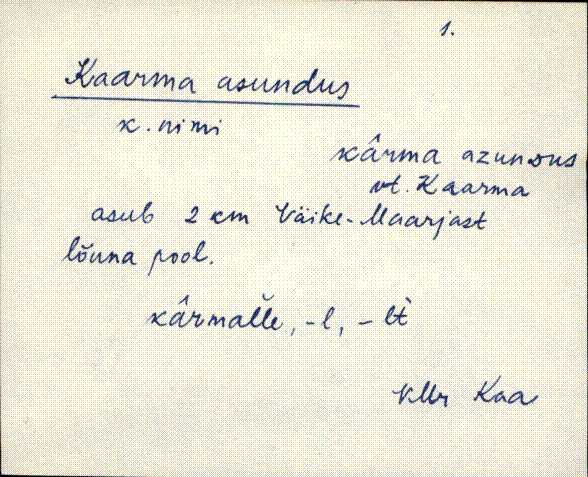 1.
Kaarma asundus
k. nimi
kârma azundus
vt. Kaarma
asub 2 km Väike-Maarjast
lõuna pool.
kârmal̆le, -l, -lt̀
VMr Kaa